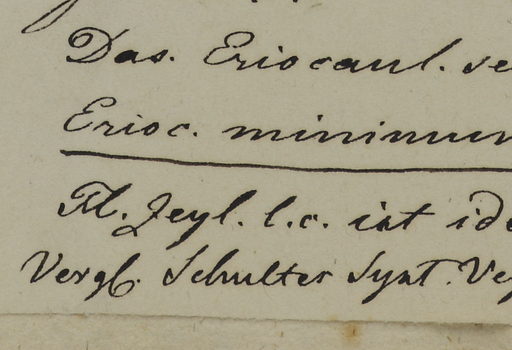 Das. Eriocaul. se
Erioc. minimum
Fl. Zeyl. l.c. ist ide
Vergl. Schultes Syst. Veg